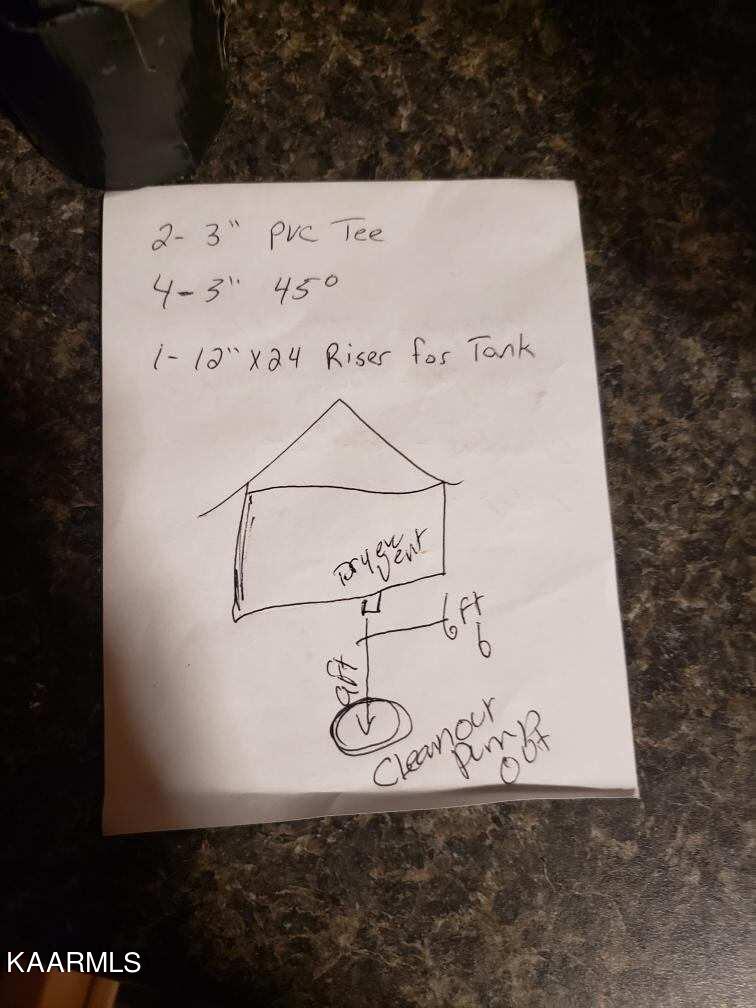 2- 3" PVC Tee
4-3" 45°
1-12" X24 Riser for Tank
Dryer
Vent
6 ft
6
9ft
Cleanout
Pump
Out
KAARMLS